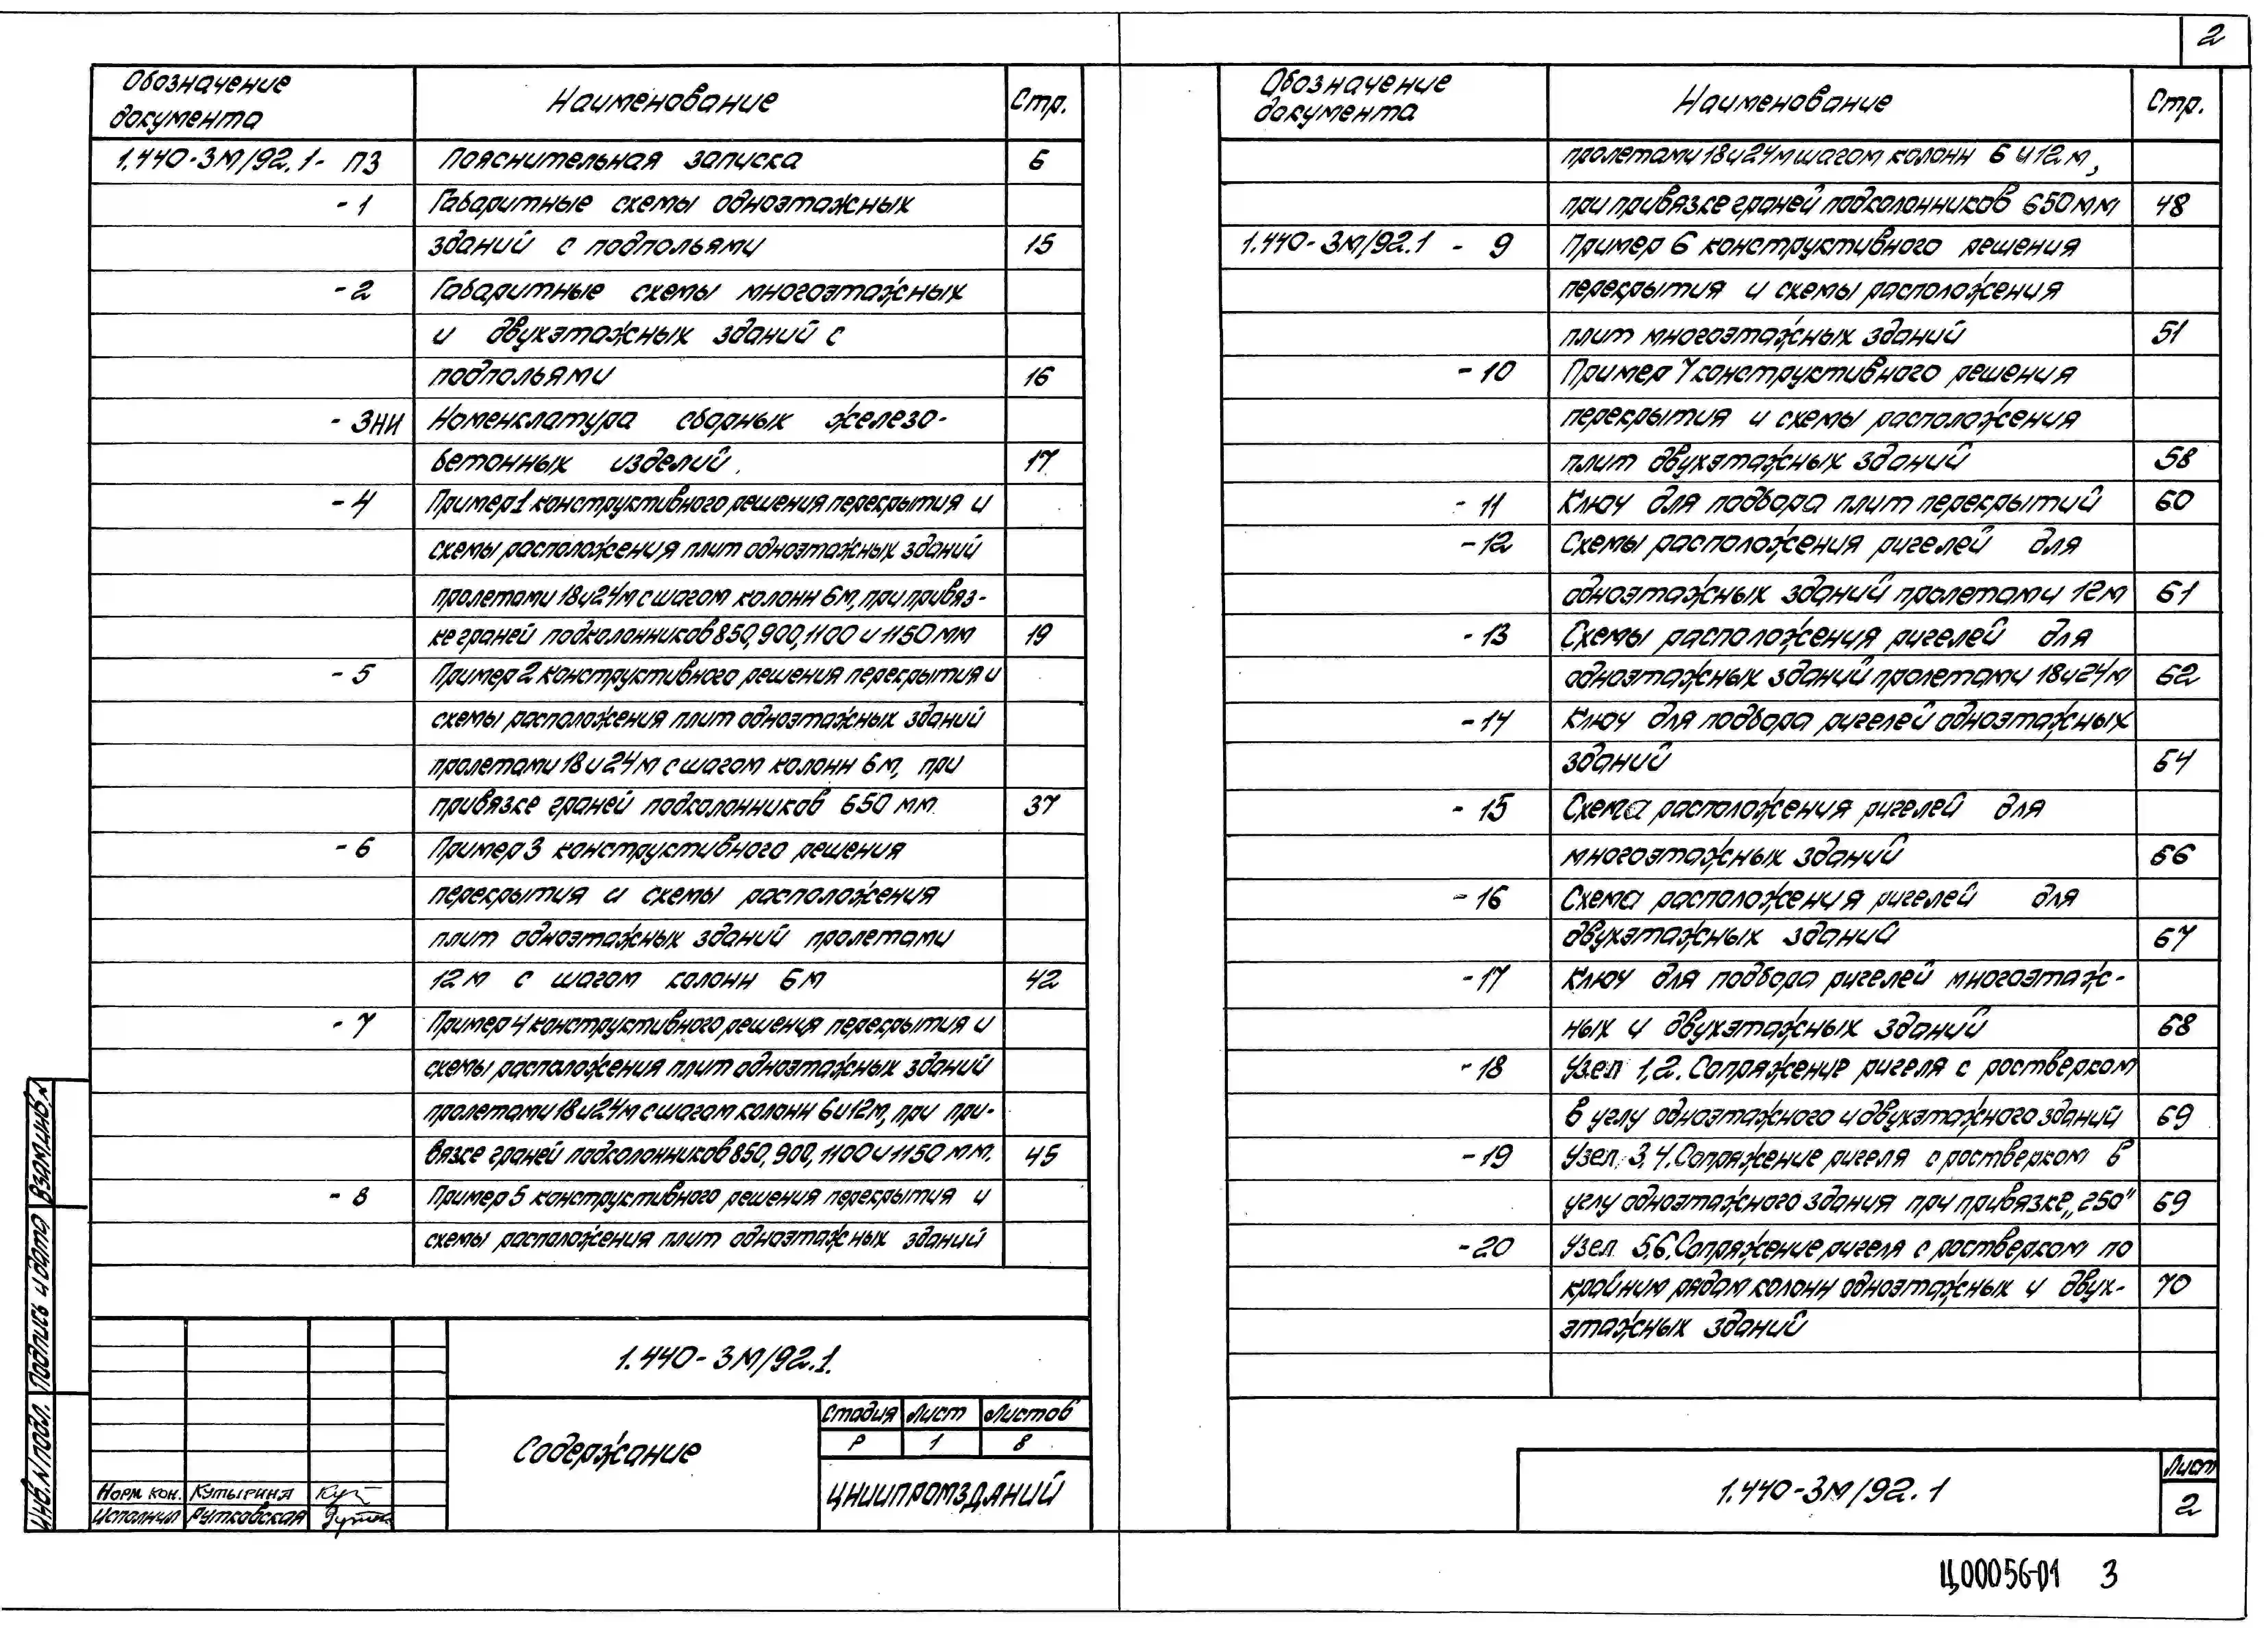 2
Обозначение документа Наименование Стр.
1.440-3М/92.1- ПЗ Пояснительная записка 6
- 1 Габаритные схемы одноэтажных
зданий с подпольями 15
- 2 Габаритные схемы многоэтажных
и двухэтажных зданий с
подпольями 16
- 3НИ Номенклатура сборных железо-
бетонных изделий. 17
- 4 Пример 1 конструктивного решения перекрытия и
схемы расположения плит одноэтажных зданий
пролетами 18 и 24м с шагом колонн 6м, при привяз-
ке граней подколонников 850, 900, 1100 и 1150 мм 19
- 5 Пример 2 конструктивного решения перекрытия и
схемы расположения плит одноэтажных зданий
пролетами 18 и 24 м с шагом колонн 6м, при
привязке граней подколонников 650 мм 37
- 6 Пример 3 конструктивного решения
перекрытия и схемы расположения
плит одноэтажных зданий пролетами
12 м с шагом колонн 6м 42
- 7 Пример 4 конструктивного решения перекрытия и
схемы расположения плит одноэтажных зданий
пролетами 18 и 24м с шагом колонн 6 и 12м, при при-
вязке граней подколонников 850, 900, 1100 и 1150 мм. 45
- 8 Пример 5 конструктивного решения перекрытия и
схемы расположения плит одноэтажных зданий
1.440-3М/92.1.
Содержание
Стадия Лист Листов
Р 1 8
ЦНИИПРОМЗДАНИЙ
Норм. кон. Кутырина
Исполнил Рутковская
Взам.инв.№
Подпись и дата
Инв.№подл.
Обозначение документа Наименование Стр.
пролетами 18 и 24м шагом колонн 6 и 12 м,
при привязке граней подколонников 650 мм 48
1.440-3М/92.1 - 9 Пример 6 конструктивного решения
перекрытия и схемы расположения
плит многоэтажных зданий 51
- 10 Пример 7 конструктивного решения
перекрытия и схемы расположения
плит двухэтажных зданий 58
- 11 Ключ для подбора плит перекрытий 60
- 12 Схемы расположения ригелей для
одноэтажных зданий пролетами 12м 61
- 13 Схемы расположения ригелей для
одноэтажных зданий пролетами 18 и 24м 62
- 14 Ключ для подбора ригелей одноэтажных
зданий 64
- 15 Схема расположения ригелей для
многоэтажных зданий 66
- 16 Схема расположения ригелей для
двухэтажных зданий 67
- 17 Ключ для подбора ригелей многоэтаж-
ных и двухэтажных зданий 68
- 18 Узел 1,2. Сопряжение ригеля с ростверком
в углу одноэтажного и двухэтажного зданий 69
- 19 Узел 3,4. Сопряжение ригеля с ростверком в
углу одноэтажного здания при привязке „250" 69
- 20 Узел 5,6. Сопряжение ригеля с ростверком по
крайним рядам колонн одноэтажных и двух- 70
этажных зданий
1.440-3М/92.1
Лист
2
Ц00056-01 3